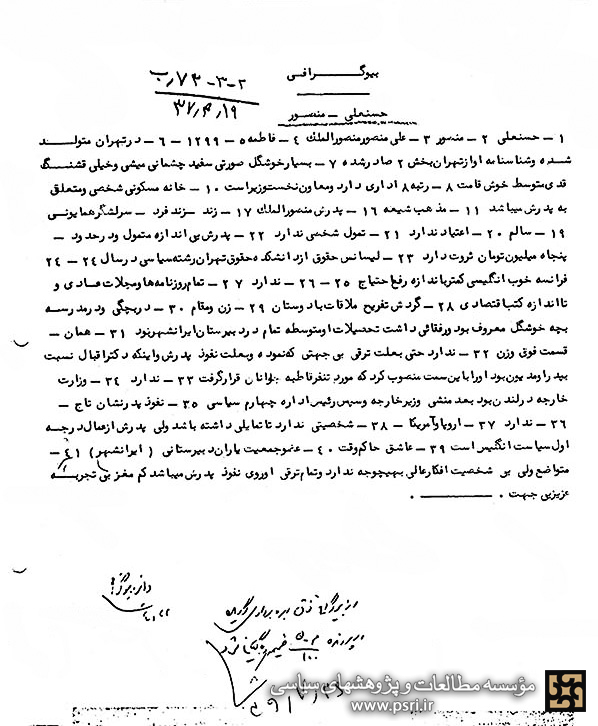 بیوگرافی
۲-۳-۷۳/ب
۳۷/۴/۱۹
حسنعلی - منصور
۱ - حسنعلی ۲ - منصور ۳ - علی منصور منصورالملک ۴ - فاطمه ۵ - ۱۲۹۹ ۶ - در تهران متولد
شده و شناسنامه او از تهران بخش ۲ صادر شده ۷ - بسیار خوشگل صورتی سفید چشمانی میشی و خیلی قشنگ
قدی متوسط خوش قامت ۸ - رتبه ۸ اداری دارد و معاون نخست وزیر است ۱۰ - خانه مسکونی شخصی و متعلق
به پدرش میباشد ۱۱ - مذهب شیعه ۱۶ - پدرش منصورالملک ۱۷ - زند فرد - سرلشگر همایونی
۱۹ - سالم ۲۰ - اعتیاد ندارد ۲۱ - تمول شخصی ندارد ۲۲ - پدرش بی اندازه متمول و در حدود -
پنجاه میلیون تومان ثروت دارد ۲۳ - لیسانس حقوق از دانشکده حقوق تهران رشته سیاسی در سال ۲۴ - ۲۴
فرانسه خوب انگلیسی کمتر باندازه رفع احتیاج ۲۵ - ۲۶ - ندارد ۲۷ - تمام روزنامه ها و مجلات عادی و
تا اندازه کتب اقتصادی ۲۸ - گردش تفریح ملاقات با دوستان ۲۹ - زن و مقام ۳۰ - در بچگی و در مدرسه
بچه خوشگل معروف بود و رفقائی داشت تحصیلات او متوسطه تمام در دبیرستان ایرانشهر بود ۳۱ - همان -
قسمت فوق وزن ۳۲ - ندارد حتی بعلت ترقی بی جهتی که نموده و بعلت نفوذ پدرش و اینکه دکتر اقبال نسبت
بپدر او مدیون بود او را باین سمت منصوب کرد که مورد تنفر قاطبه جوانان قرار گرفت ۳۳ - ندارد ۳۴ - وزارت
خارجه در لندن بود بعد منشی وزیر خارجه و سپس رئیس اداره چهارم سیاسی ۳۵ - نفوذ پدرشان تاج -
۳۶ - ندارد ۳۷ - اروپا و آمریکا - ۳۸ - شخصیتی ندارد تا تمایلی داشته باشد ولی پدرش از عمال درجه
اول سیاست انگلیس است ۳۹ - عاشق حاکم وقت ۴۰ - عضو جمعیت یاران دبیرستانی (ایرانشهر) ۴۱ -
متواضع ولی بی شخصیت افکار عالی بهیچوجه ندارد و تمام ترقی او روی نفوذ پدرش میباشد کم مغز بی تجربه
عزیز بی جهت .
از بیوگرافی فوق بهره برداری گردید
مؤسسه مطالعات و پژوهشهای سیاسی
www.psri.ir